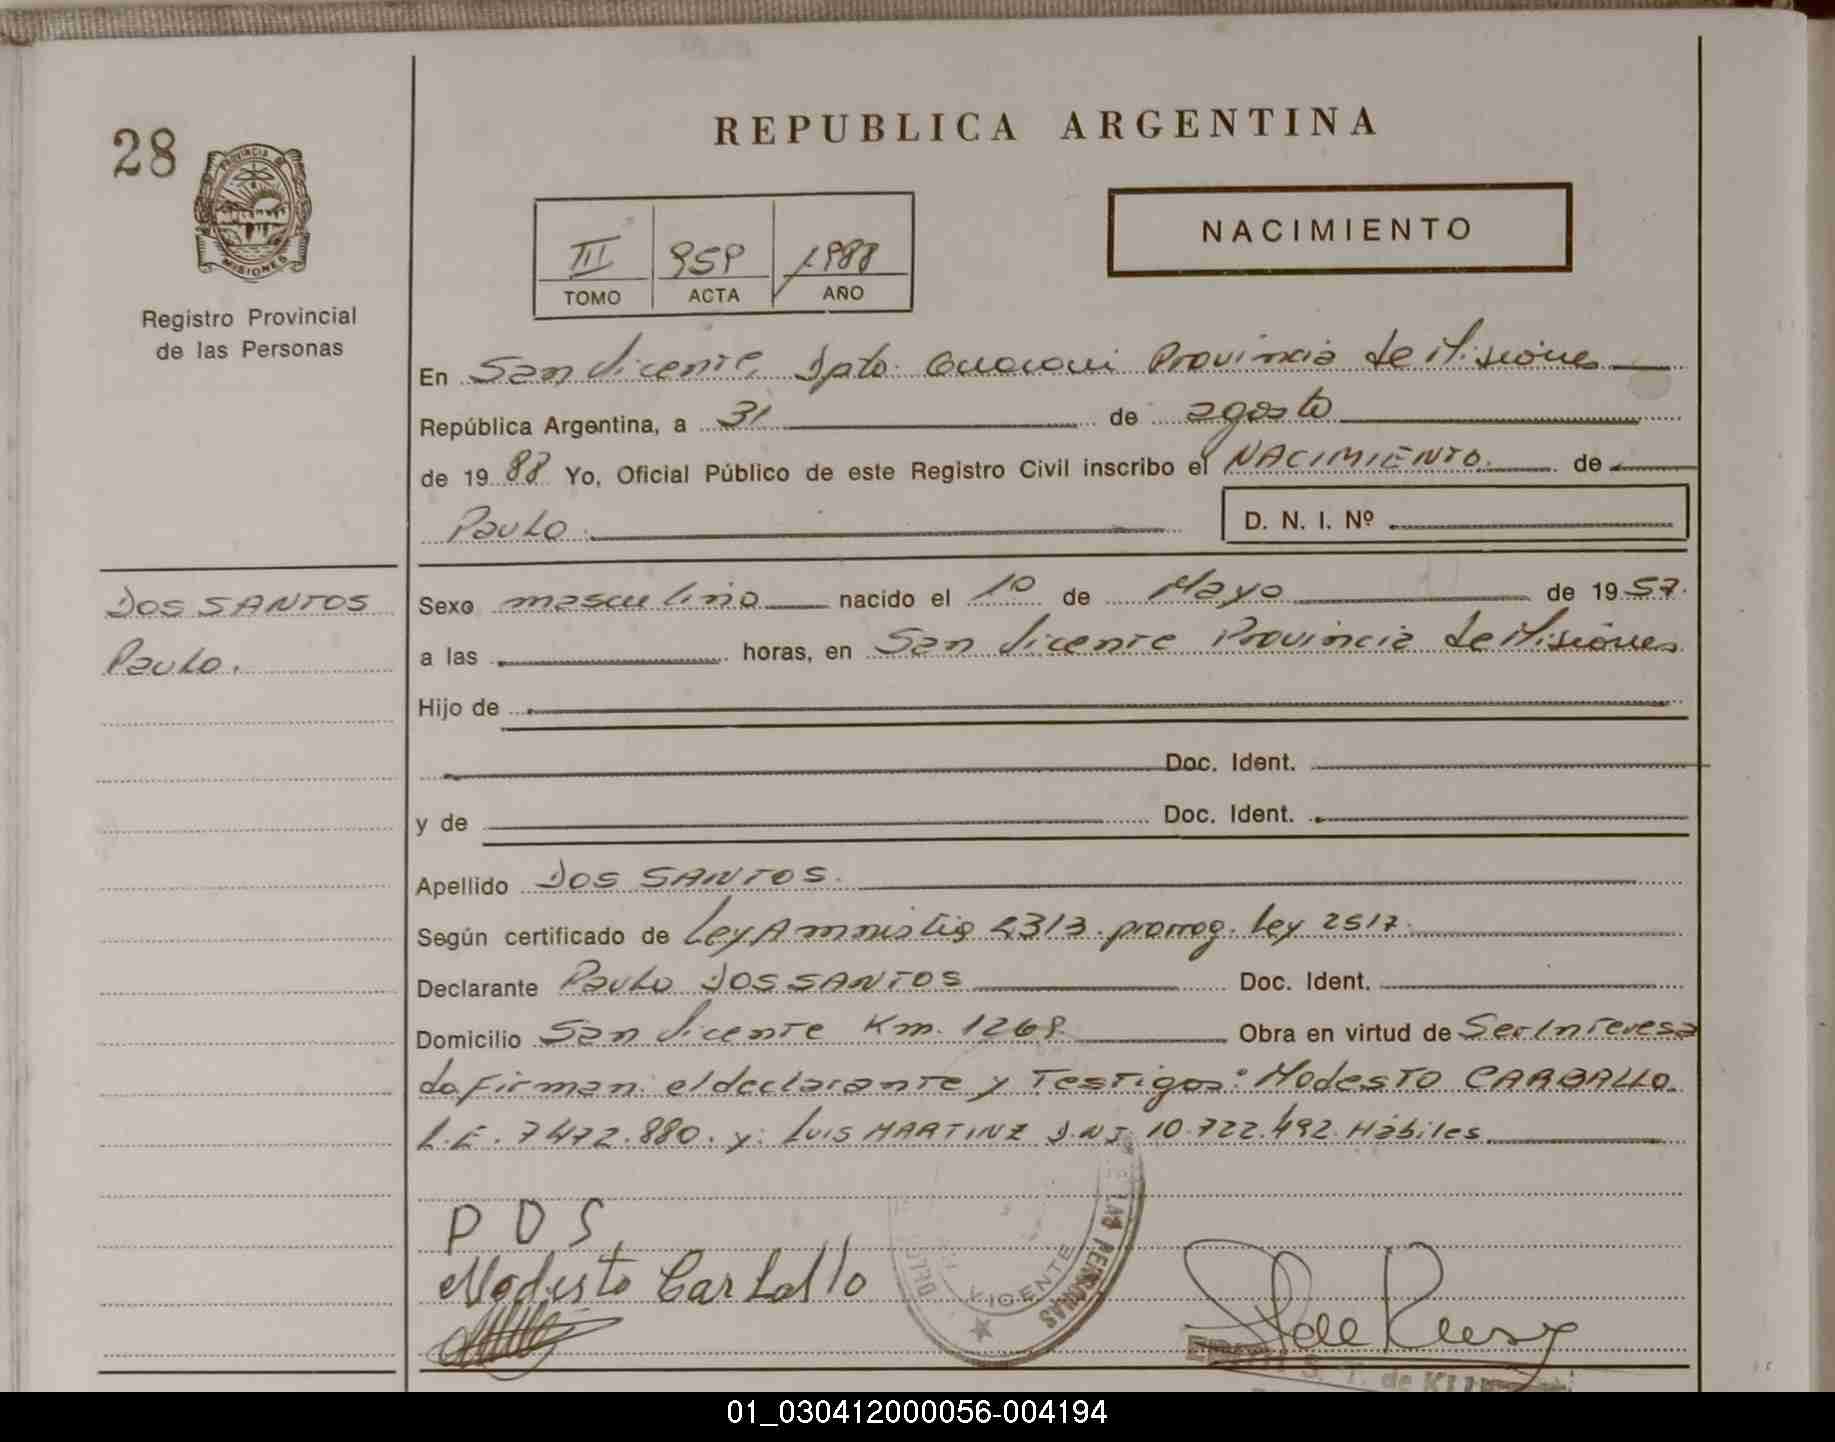 REPUBLICA ARGENTINA
28
PROVINCIA DE
MISIONES
Registro Provincial
de las Personas
III 959 1988
TOMO ACTA AÑO
NACIMIENTO
En San Vicente, Dpto. Guarani Provincia de Misiones
República Argentina, a 31 de agosto
de 19 88 Yo, Oficial Público de este Registro Civil inscribo el NACIMIENTO. de
Paulo D. N. I. Nº
DOS SANTOS
Paulo.
Sexo masculino nacido el 10 de Mayo de 19 57.
a las horas, en San Vicente Provincia de Misiones
Hijo de
Doc. Ident.
y de Doc. Ident.
Apellido DOS SANTOS.
Según certificado de Ley Amnistia 2313. prorrog. Ley 2517.
Declarante Paulo DOS SANTOS Doc. Ident.
Domicilio San Vicente Km. 1269 Obra en virtud de Ser Interesa
do Firman: el declarante y Testigos: Modesto CARBALLO.
L.E. 7472.880. y: Luis MARTINZ D.N.I 10.722.492 Hábiles
P D S
Modesto Carballo
LAS PERSONAS
VICENTE
S. T. de
01_030412000056-004194